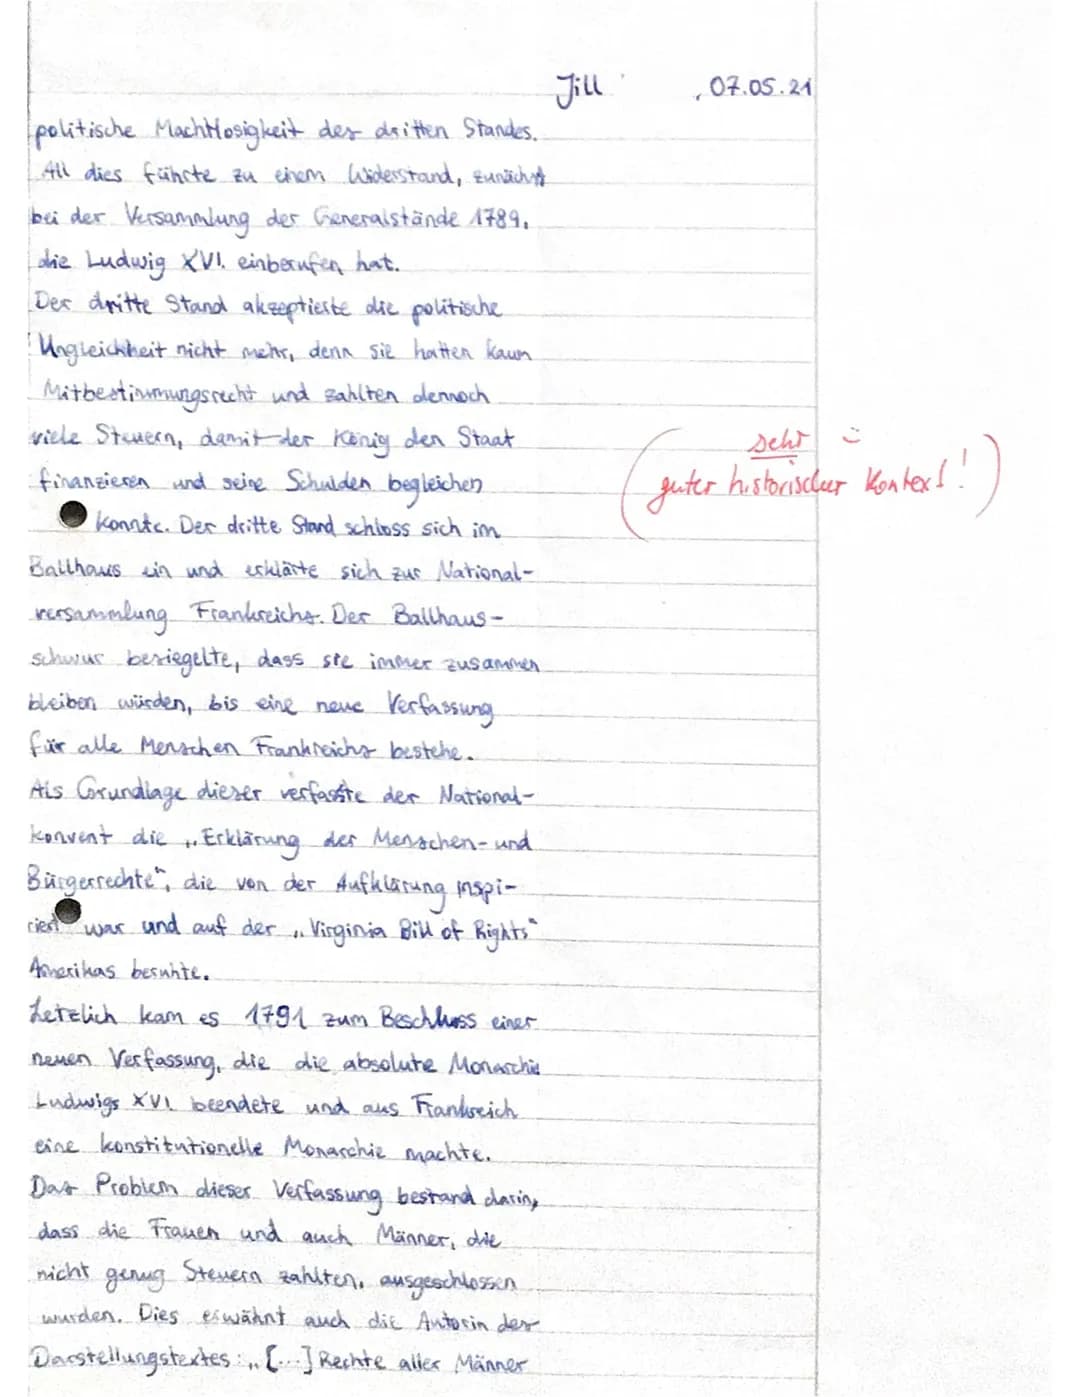 Jill , 07.05.21
politische Machtlosigkeit des dritten Standes.
All dies führte zu einem Widerstand, zunächst
bei der Versammlung der Generalstände 1789,
die Ludwig XVI. einberufen hat.
Der dritte Stand akzeptierte die politische
Ungleichheit nicht mehr, denn sie hatten kaum
Mitbestimmungsrecht und zahlten dennoch
viele Steuern, damit der König den Staat
sehr
finanzieren und seine Schulden begleichen
(guter historischer Kontext!)
konnte. Der dritte Stand schloss sich im
Ballhaus ein und erklärte sich zur National-
versammlung Frankreichs. Der Ballhaus-
schwur besiegelte, dass sie immer zusammen
bleiben würden, bis eine neue Verfassung
für alle Menschen Frankreichs bestehe.
Als Grundlage dieser verfasste der National-
konvent die „Erklärung der Menschen- und
Bürgerrechte“, die von der Aufklärung inspi-
riert war und auf der „Virginia Bill of Rights“
Amerikas beruhte.
Letzlich kam es 1791 zum Beschluss einer
neuen Verfassung, die die absolute Monarchie
Ludwigs XVI. beendete und aus Frankreich
eine konstitutionelle Monarchie machte.
Das Problem dieser Verfassung bestand darin,
dass die Frauen und auch Männer, die
nicht genug Steuern zahlten, ausgeschlossen
wurden. Dies erwähnt auch die Autorin des
Darstellungstextes: „[...] Rechte aller Männer